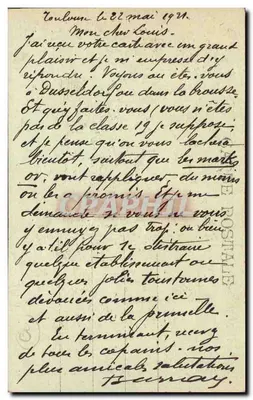 Toulon le 22 mai 1921.
Mon cher Louis.
J'ai reçu votre carte avec un grand
plaisir et je m'empresse d'y
répondre. Voyons où êtes-vous
à Dusseldorf ou dans la brousse
Et qu'y faites-vous, vous n'êtes
pas de la classe 19 je suppose
et je pense qu'on vous lachera
bientôt, surtout que les marks
or, vont rappliquer, du moins
on les promis. Et je me
demande si vous
y ennuyez pas trop, ou bien
y a t'il pour se distraire
quelque établissement ou
quelques jolies
comme ici
et aussi de la prunelle.
En terminant, recevez
de tous les copains nos
plus amicales salutations
CARTE POSTALE